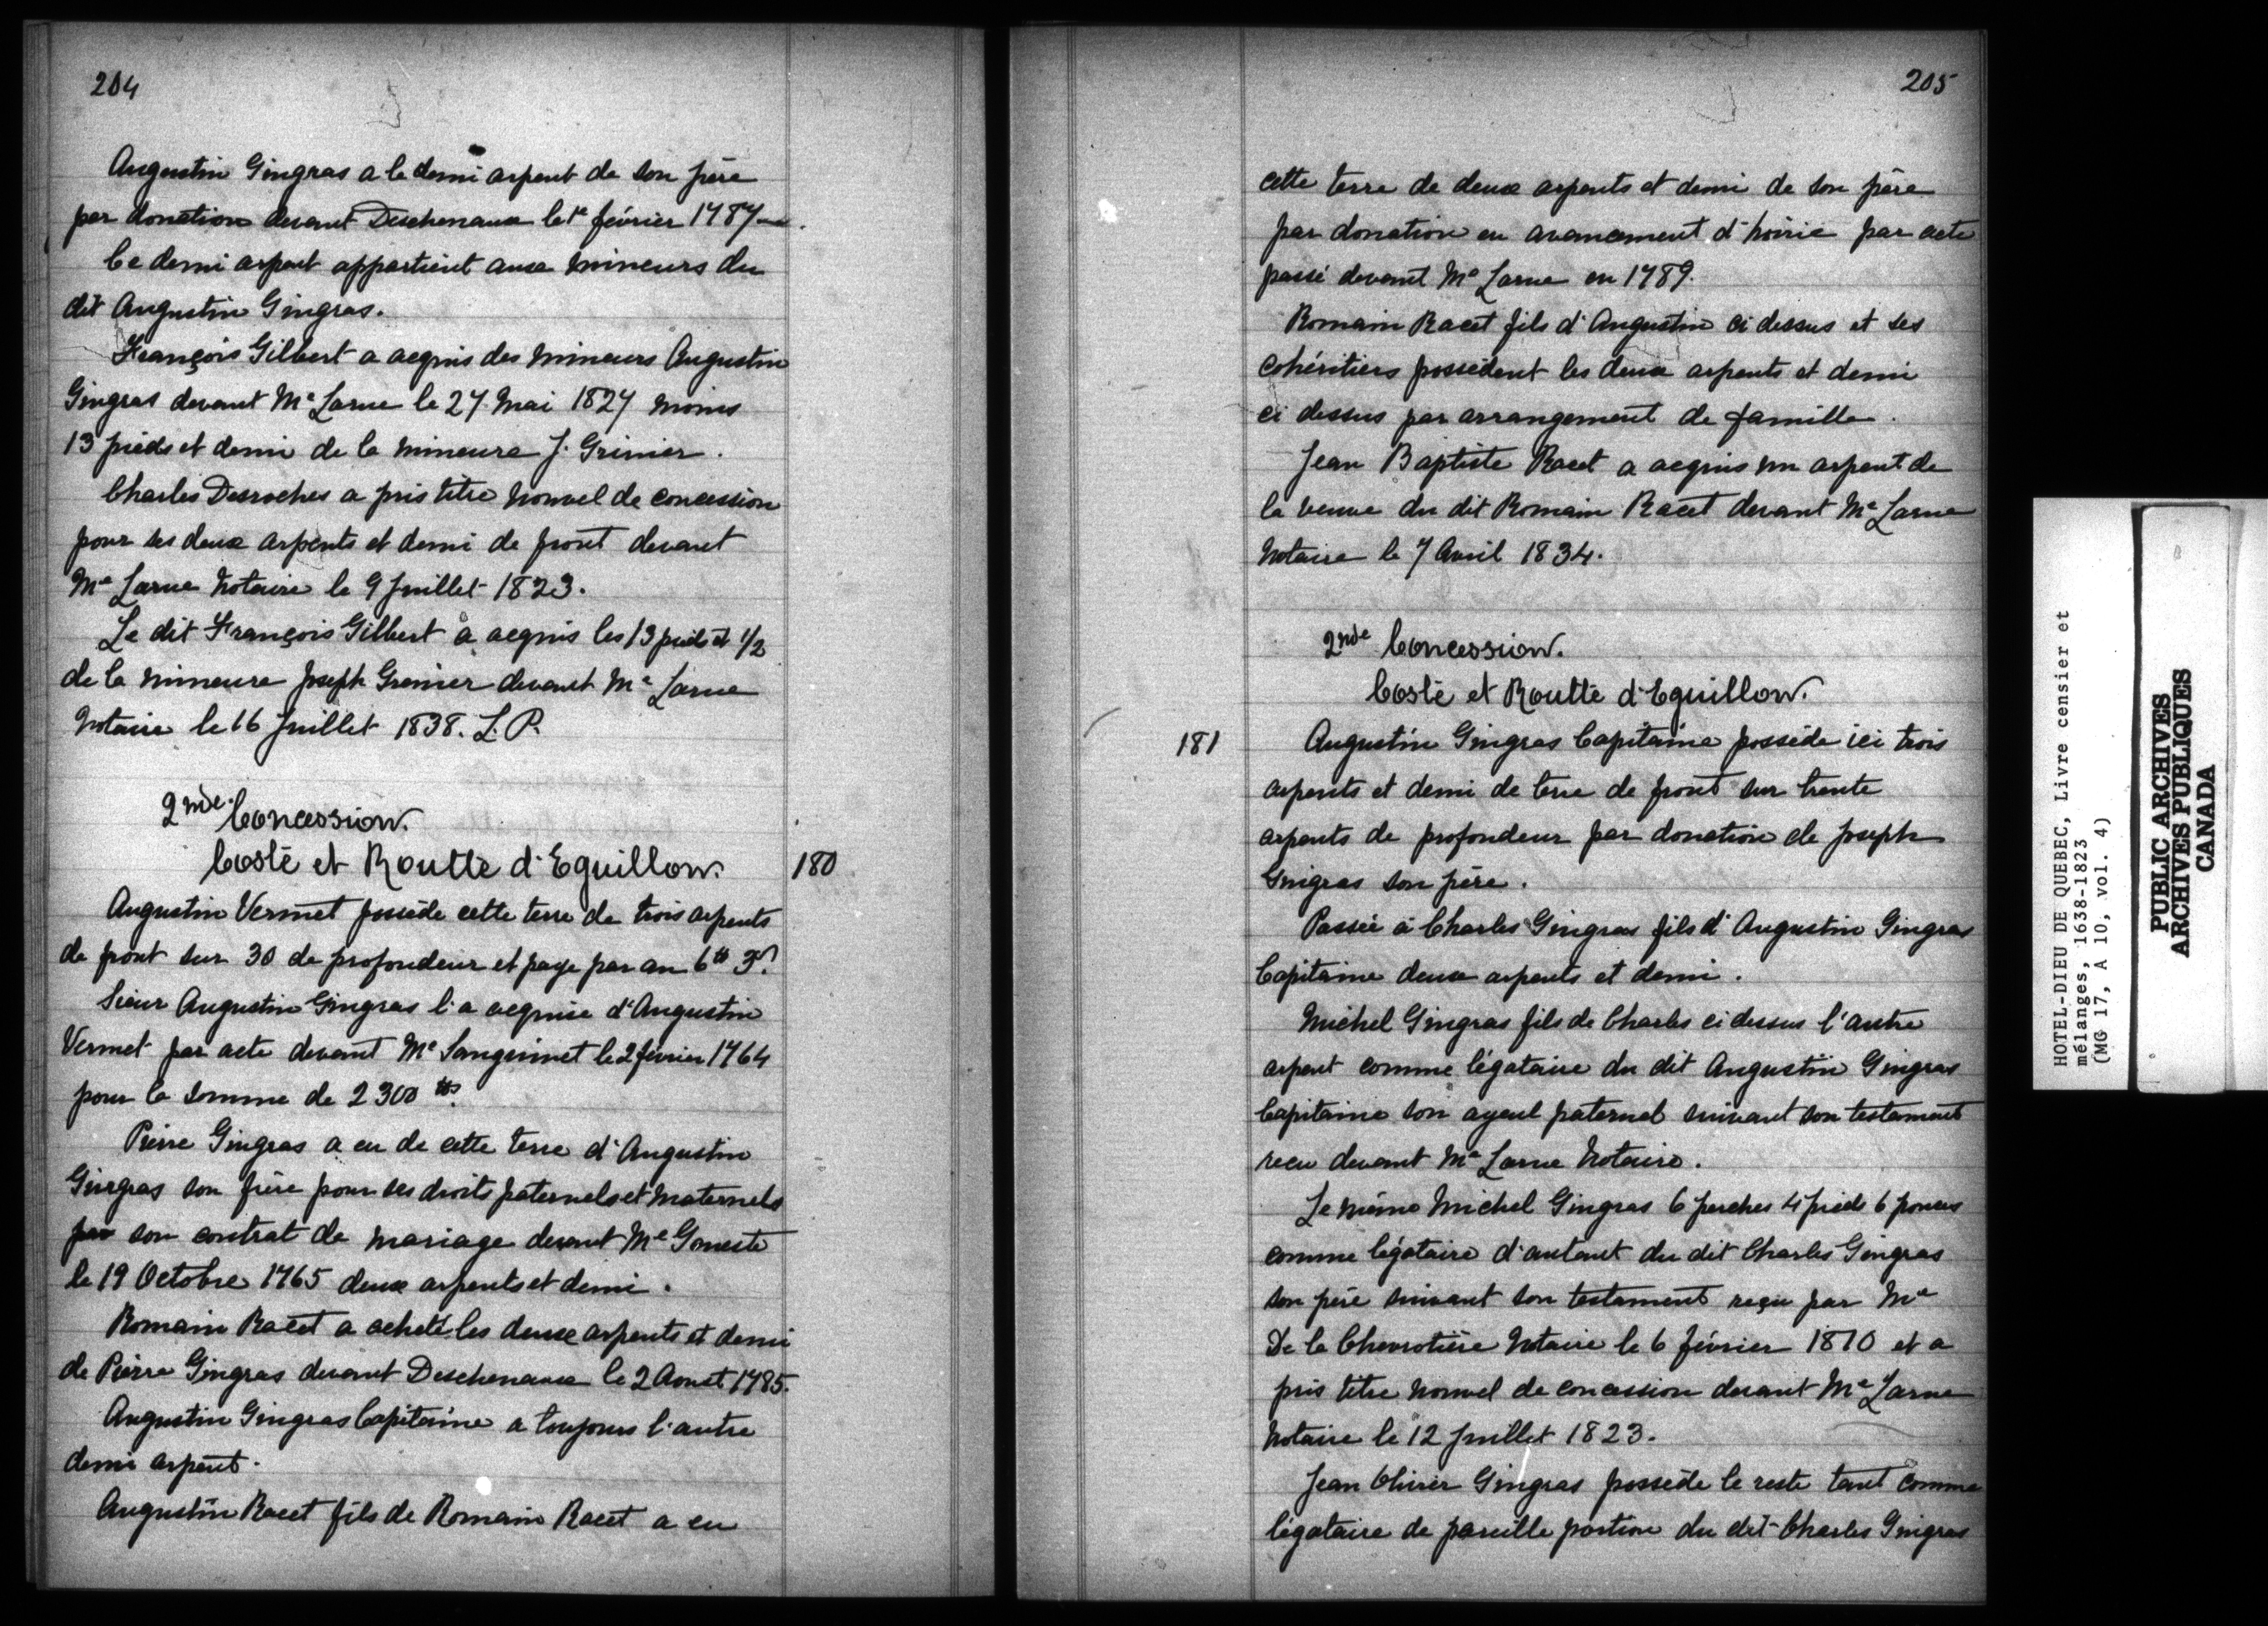 204
Augustin Gingras a le demi arpent de son père
par donation devant Deschenaux le 1er février 1787
Ce demi arpent appartient aux mineurs du
dit Augustin Gingras.
François Gilbert a acquis des mineurs Augustin
Gingras devant Me Larue le 27 Mai 1827 moins
13 pieds et demi de la mineure J. Grinier.
Charles Desroches a pris titre nouvel de concession
pour ses deux arpents et demi de front devant
Me Larue Notaire le 9 Juillet 1823.
Le dit François Gilbert a acquis les 13 pieds et 1/2
de la mineure Joseph Grenier devant Me Larue
Notaire le 16 Juillet 1838. L. P.
2nde Concession.
Costé et Routte d'Eguillon.
180
Augustin Vermet possède cette terre de trois arpents
de front sur 30 de profondeur et paye par an 6tt 3s.
Sieur Augustin Gingras l'a acquise d'Augustin
Vermet par acte devant Me Sanguinet le 2 février 1764
pour la somme de 2300tts.
Pierre Gingras a eu de cette terre d'Augustin
Gingras son frère pour ses droits paternels et maternels
par son contrat de mariage devant Me Gouneste
le 19 Octobre 1765 deux arpents et demi.
Romain Racet a acheté les deux arpents et demi
de Pierre Gingras devant Deschenaux le 2 Aoust 1785.
Augustin Gingras Capitaine a toujours l'autre
demi arpent.
Augustin Racet fils de Romain Racet a eu
205
cette terre de deux arpents et demi de son père
par donation en avancement d'hoirie par acte
passé devant Me Larue en 1789.
Romain Racet fils d'Augustin ci dessus et ses
cohéritiers possèdent les deux arpents et demi
ci dessus par arrangement de famille.
Jean Baptiste Racet a acquis un arpent de
la veuve du dit Romain Racet devant Me Larue
Notaire le 7 Avril 1834.
2nde Concession.
Costé et Routte d'Eguillon.
181
Augustin Gingras Capitaine possède ici trois
arpents et demi de terre de front sur trente
arpents de profondeur par donation de Joseph
Gingras son père.
Passée à Charles Gingras fils d'Augustin Gingras
Capitaine deux arpents et demi.
Michel Gingras fils de Charles ci dessus l'autre
arpent comme légataire du dit Augustin Gingras
Capitaine son ayeul paternel suivant son testament
recu devant Me Larue Notaire.
Le même Michel Gingras 6 perches 4 pieds 6 pouces
comme légataire d'autant du dit Charles Gingras
son père suivant son testament reçu par Me
De la Chevrotière Notaire le 6 février 1810 et a
pris titre nouvel de concession devant Me Larue
Notaire le 12 Juillet 1823.
Jean Olivier Gingras possède le reste tant comme
légataire de pareille portion du dit Charles Gingras
HOTEL-DIEU DE QUEBEC, Livre censier et
mélanges, 1638-1823
(MG 17, A 10, vol. 4)
PUBLIC ARCHIVES
ARCHIVES PUBLIQUES
CANADA